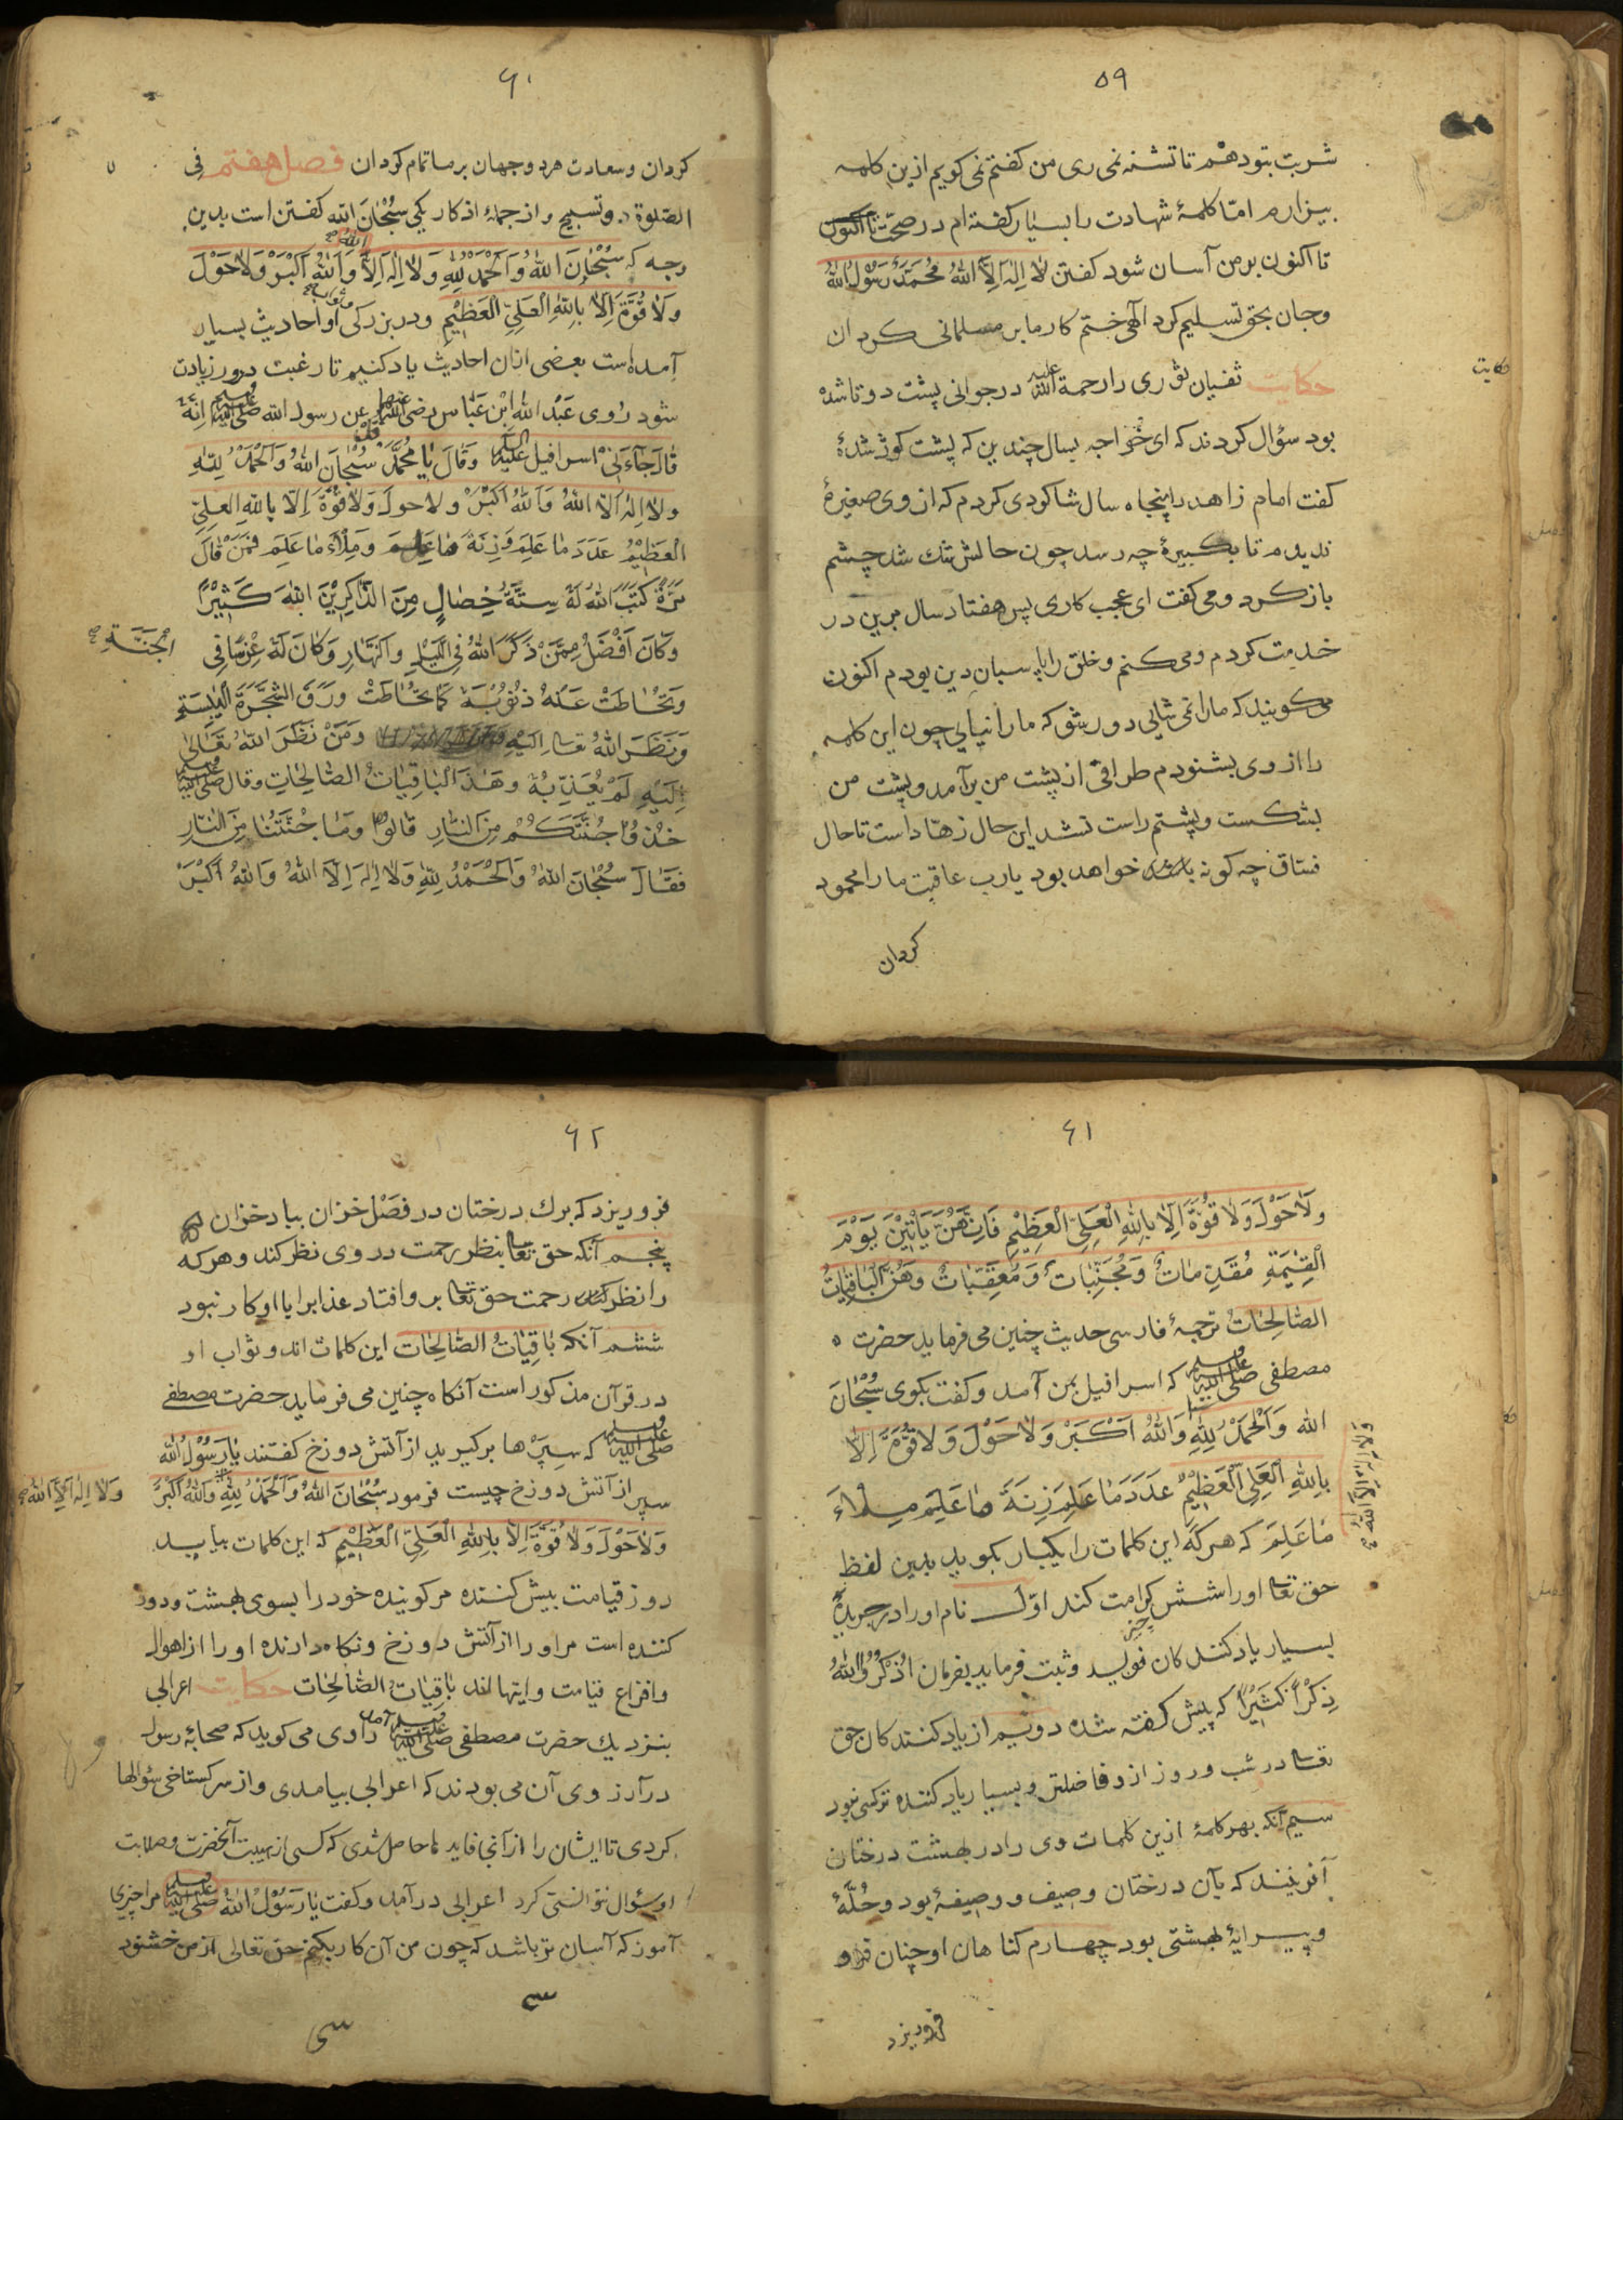 ۵۹
شربت بتو دهم تا تشنه نمی ری من کفتم نمی کویم ازین کلمه
بیزارم امّا کلمهٔ شهادت را بسیار کفته ام در صحّت
تا اکنون بر من آسان شود کفتن لا اِلٰهَ اِلَّا اللهُ مُحَمَّدٌ رَسُوْلُ اللهُ
وجان بحق تسلیم کرد الٓهی ختم کار ما بر مسلمانی کردان
حکایت
حکایت ثفیان ثوری را رحمة الله علیه در جوانی پشت دوتا شده
بود سؤال کردند که ای خواجه بسال چندین که پشت کوژ شدهٔ
کفت امام زاهد را پنجاه سال شاکردی کردم که از وی صغیرهٔ
ندیدم تا بکبیرهٔ چه رسد چون حالش تنك شد چشم
باز کرد و می کفت ای عجب کاری پس هفتاد سال برین در
خدمت کردم و می کنم و خلق را پاسبان دین بودم اکنون
می کویند که ما را نمی شایی دور شو که ما را نیایی چون این کلمه
را از وی بشنودم طراقی از پشت من برآمد و پشت من
بشکست و پشتم راست نشد این حال زهّاد است تا حال
فسّاق چه کونه خواهد بود یارب عاقبت ما را محمود
کردان
۶۰
کردان و سعادت هردو جهان بر ما تمام کردان فصل هفتم فِی
الصّلوة و تسبیح و از جملهٔ اذکار یکی سُبْحٰانَ الله کفتن است بدین
وجه که سُبْحٰانَ اللهُ وَ اَلْحَمْدُ لِلّٰهِ وَلاٰ اِلٰهَ اِلاَّ اللهُ وَاللهُ اَکْبَرْ وَلاٰ حَوْلَ
وَلاٰ قُوَّةَ اِلاّٰ بِاللهِ الْعَلِيِّ الْعَظٖیْمِ و در بزرکی و ثواب او احادیث بسیار
آمده است بعضی ازان احادیث یاد کنیم تا رغبت در و زیادت
شود رُوِی عَبْدُ اللهِ اِبْنِ عَبّاس رضی الله عنهما عن رسول الله صلی الله علیه وسلم اِنَّهُ
قٰالَ جٰآءَنٖیْ اسرافیل عَلَیْهِ السلم وَقٰالَ یٰا مُحَمَّدْ قل سُبْحٰانَ اللهُ وَ اَلْحَمْدُ لِلّٰهِ
ولاٰ اِلٰهَ اِلاّٰ اللهُ وَ اَللهُ اَکْبَرْ ولا حولَ وَلاٰ قُوَّةَ اِلاّٰ بِاللهِ العلِیِّ
الْعَظٖیْمُ عَدَدَ مٰا عَلِمَ وَزِنَةَ مٰا عَلِمَ وَمِلْاَءَ مٰا عَلِمَ فَمَنْ قٰالَ
مَرَّةً کَتَبَ اللهُ لَهُ سِتَّةُ خِصٰالٍ مِنَ الذّٰاکِرٖیْنَ اللهَ کَثٖیْرًا
وَکٰانَ اَفْضَلُ مِمَّنْ ذَکَرَ اللهُ فِی الَّیْلِ وَالنَّهٰارِ وَکٰانَ لَهُ غِرْسًا فِی
الْجَنَّةِ
وَتَحٰاطَتْ عَنْهُ ذُنُوْبُهُ کَمٰا تَحٰاطَتْ وَرَقُ الشَّجَرَةِ الْیٰبِسَةِ
وَنَظَرَ اللهُ تعا اِلَیْهِ وَمَنْ نَظَرَ اللهُ تَعٰالیٰ
اِلَیْهِ لَمْ یُعَذِّبْهُ وَهٰذِهِ الْبٰاقِیٰاتُ الصّٰالِحٰاتِ وقال صلی الله علیه وسلم
خُذُوْا جُنَّتَکُمْ مِنَ النّٰارِ قٰالُوْا وَمٰا جُنَّتُنٰا مِنَ النّٰارِ
فَقٰالَ سُبْحٰانَ اللهُ وَ اَلْحَمْدُ لِلّٰهِ وَلاٰ اِلٰهَ اِلاَّ اللهُ وَاللهُ اَکْبَرْ
۶۱
وَلاٰ حَوْلَ وَلاٰ قُوَّةَ اِلاّٰ بِاللهِ الْعَلِيِّ الْعَظٖیْمِ فَاِنَّهُنَّ یَأْتٖیْنَ یَوْمَ
الْقِیٰمَةِ مُقَدِّمٰاتٌ وَمُجَنِّبٰاتٌ وَمُعَقِّبٰاتٌ وَهُنَّ الْبٰاقِیٰاتُ
الصّٰالِحٰاتُ ترجمهٔ فارسی حدیث چنین می فرماید حضرت
مصطفی صلی الله علیه وسلم که اسرافیل بمن آمد و کفت بکوی سُبْحٰانَ
الله وَ اَلْحَمْدُ لِلّٰهِ وَاللهُ اَکْبَرْ وَلاٰ حَوْلَ وَلاٰ قُوَّةَ اِلاّٰ
وَلاٰ اِلٰهَ اِلاَّ اللهُ
بِاللهِ الْعَلِيِّ الْعَظٖیْمُ عَدَدَ مٰا عَلِمَ زِنَةَ مٰا عَلِمَ مِلْاَءَ
مٰا عَلِمَ که هر که این کلمات را یکبار بکوید بدین لفظ
حق تعا او را شش چیز کرامت کند اوّل نام او را در جریدهٔ
بسیار یاد کنندکان نویسد و ثبت فرماید بفرمان اُذْکُرُوا اللهُ
ذِکْرًا کَثٖیْرًا که پیش کفته شده دویم از یاد کنندکان حق
تعا در شب و روز ازو فاضلتر و بسیار یاد کننده تر کسی نبود
سیم آنکه بهر کلمهٔ ازین کلمات وی را در بهشت درختان
آفرینند که بآن درختان وصیف و وصیفهٔ بود و حُلّهٔ
و پیرایهٔ بهشتی بود چهارم کناهان او چنان
فروریزد
۶۲
فروریزد که برك درختان در فصل خزان بباد خزان
پنجم آنکه حق تعا بنظر رحمت در وی نظر کند و هر که
را نظر رحمت حق تعا بر و افتاد عذابرا با او کار نبود
ششم آنکه بٰاقِیٰاتُ الصّٰالِحٰات این کلمات اند و ثواب او
در قرآن مذکور است آنکاه چنین می فرماید حضرت مصطفی
صلی الله علیه وسلم که سپرها برکیرید از آتش دوزخ کفتند یٰا رَسُوْلُ الله
سپر از آتش دوزخ چیست فرمود سُبْحٰانَ اللهُ وَ اَلْحَمْدُ لِلّٰهِ وَاللهُ اَکْبَرْ
وَلاٰ اِلٰهَ اِلاَّ اللهُ
وَلاٰ حَوْلَ وَلاٰ قُوَّةَ اِلاّٰ بِاللهِ الْعَلِيِّ الْعَظٖیْمِ که این کلمات بیاید
روز قیامت پیش کننده مر کوینده خود را بسوی بهشت و دور
کننده است مر او را از آتش دوزخ و نکاه دارنده او را از اهوال
و افزاع قیامت و اینها اند بٰاقِیٰاتُ الصّٰالِحٰات حکایت اعرابی
بنزدیك حضرت مصطفی صلی الله علیه وسلم آمد راوی می کوید که صحابهٔ رسول
در آرزوی آن می بودند که اعرابی بیامدی و از سر کستاخی سؤالها
کردی تا ایشان را از آنجا فایدها حاصل شدی که کسی از هیبت آنحضرت و صلابت
او سؤال نتوانستی کرد اعرابی در آمد و کفت یٰا رَسُوْلُ اللهُ صلی الله علیه وسلم مرا چیزی
آموز که آسان تر باشد که چون من آن کار بکنم حق تعالی از من خشنود